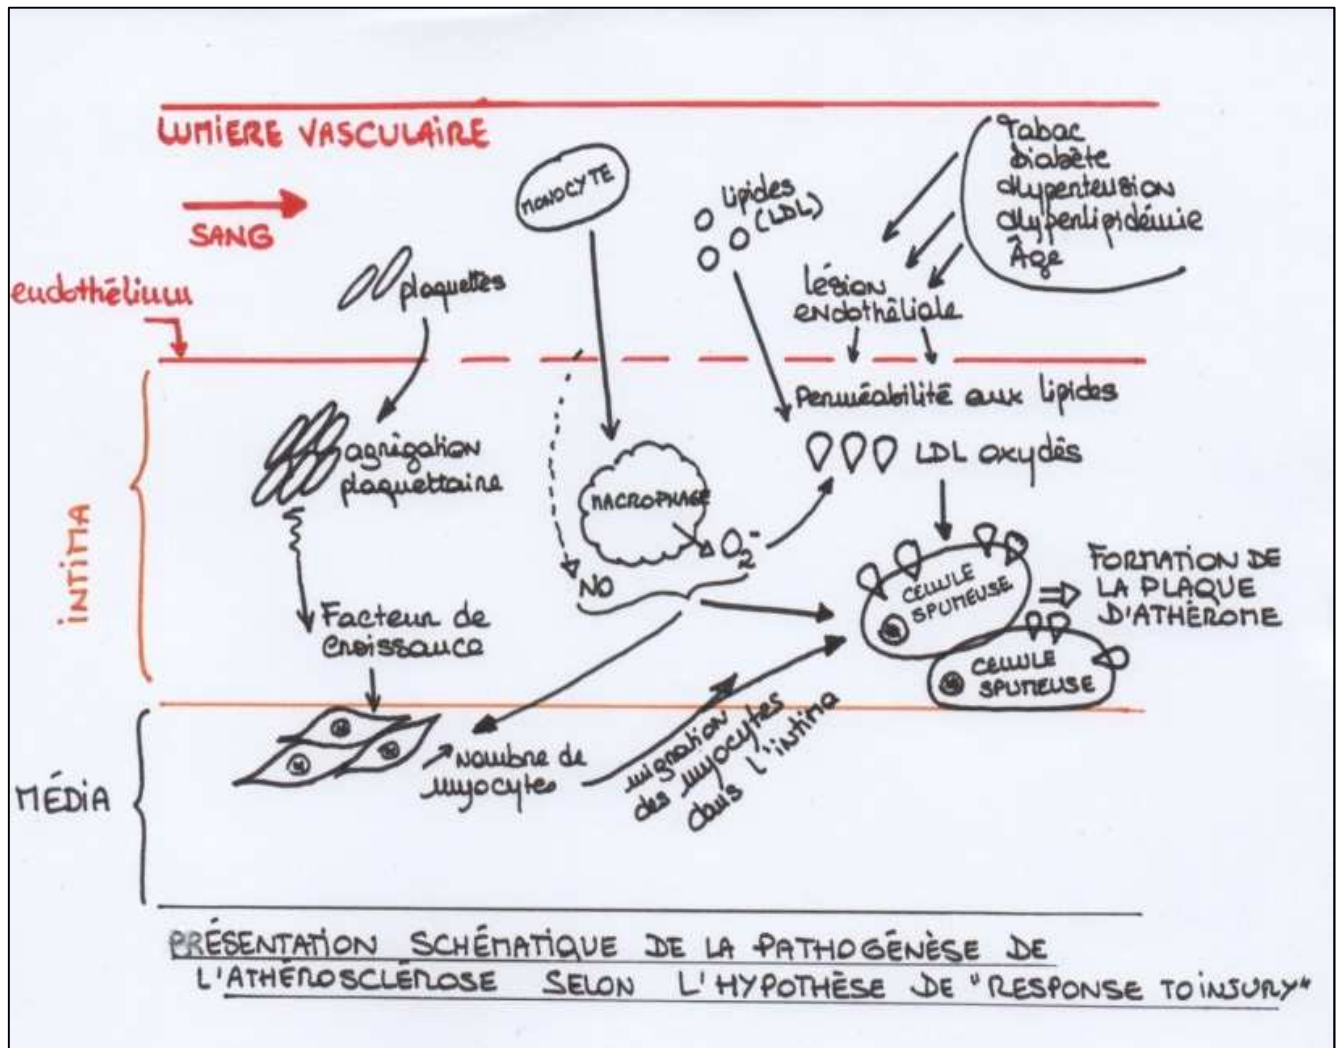 LUMIERE VASCULAIRE
SANG
endothélium
plaquettes
MONOCYTE
lipides
(LDL)
Tabac
Diabète
Hypertension
Hyperlipidémie
Âge
lésion
endothéliale
Perméabilité aux lipides
LDL oxydés
agrégation
plaquettaire
MACROPHAGE
O₂⁻
NO
INTIMA
Facteur de
croissance
CELLULE
SPUMEUSE
FORMATION DE
LA PLAQUE
D'ATHÉROME
CELLULE
SPUMEUSE
MÉDIA
Nombre de
myocytes
migration
des myocytes
dans l'intima
PRÉSENTATION SCHÉMATIQUE DE LA PATHOGÉNÈSE DE
L'ATHÉROSCLÉROSE SELON L'HYPOTHÈSE DE "RESPONSE TO INJURY"